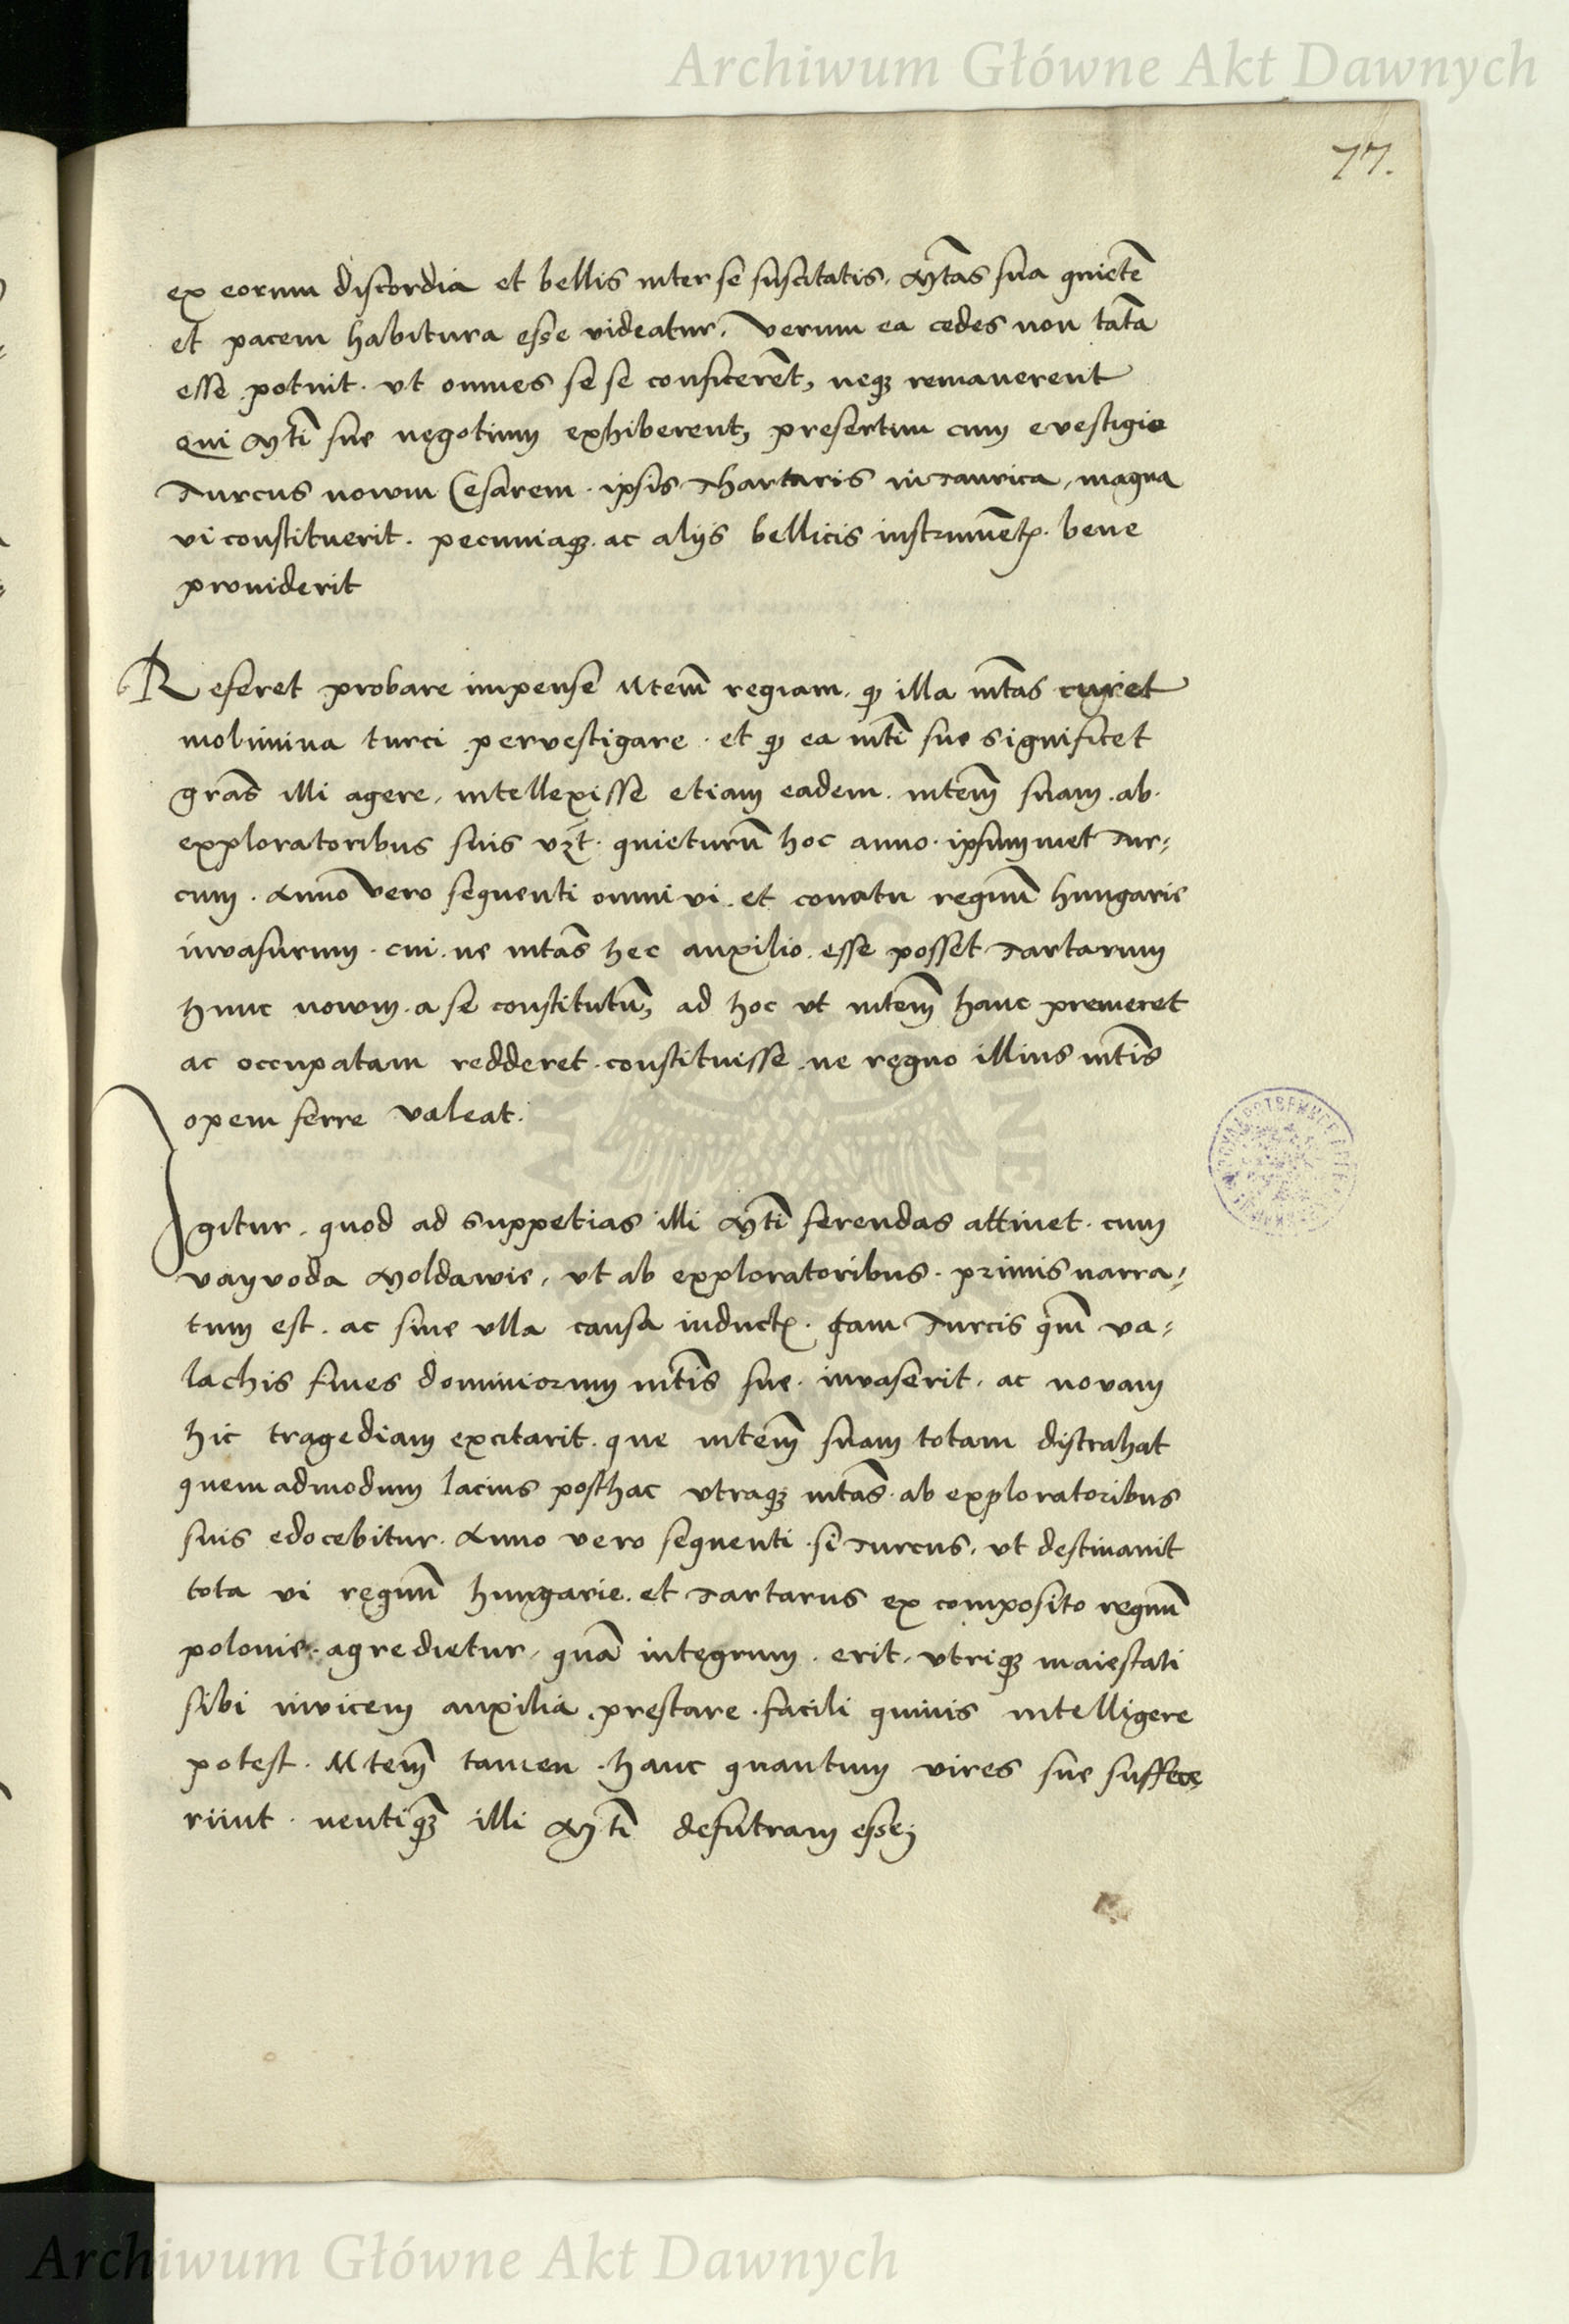 Archiwum Główne Akt Dawnych
77.
ex eorum discordia et bellis inter se suscitatis. Mt̃as sua quietẽ
et pacem habitura esse videatur. Verum ea cedes non tãta
esse potuit. vt omnes se se conficerẽt, neqꝫ remanerent
qui Mt̃i sue negotium exhiberent, presertim cum evestigio
Turcus nowm Cesarem. ipsis Thartaris in Taurica, magna
vi constituerit. pecuniaqꝫ. ac alijs bellicis instrumẽtꝭ. bene
prouiderit
Referet probare impense Mtem̃ regiam. ꝙ illa mt̃as curiet
molimina turci pervestigare. et ꝙ ea mt̃i sue significet
grãs illi agere, intellexisse etiam eadem. mtem̃ suam. ab.
exploratoribus suis vzt̃. quieturũ hoc anno. ipsummet Tur=
cum. Anno vero sequenti omni vi. et conatu regnũ hungarie
invasurum. cui. ne mtãs hec auxilio. esse posset Tartarum
hunc nowm. a se constitutũ, ad hoc vt mtem̃ hanc premeret
ac occupatam redderet. constituisse. ne regno illius mt̃is
opem ferre valeat.
Igitur. quod ad suppetias illi Mt̃i ferendas attinet. cum
vayvoda Moldawie, vt ab exploratoribus. primis narra=
tum est. ac sine vlla causa inductꝭ. tam Turcis qm̃ va=
lachis fines dominiorum mt̃is sue. invaserit. ac novam
hic tragediam excitarit. que mtem̃ suam totam distrahat
quemadmodum lacius posthac vtraqꝫ mtãs. ab exploratoribus
suis edocebitur. Anno vero sequenti. si Turcus, vt destinauit
tota vi regnũ hungarie. et Tartarus ex composito regnũ
polonie. agredietur, quã integrum. erit, vtriqꝫ maiestati
sibi invicem auxilia prestare. facili quiuis intelligere
potest. Mtem̃ tamen. hanc quantum vires sue suffece
riint. neutiqꝫ̃ illi Mt̃i defutram esse;
Archiwum Główne Akt Dawnych